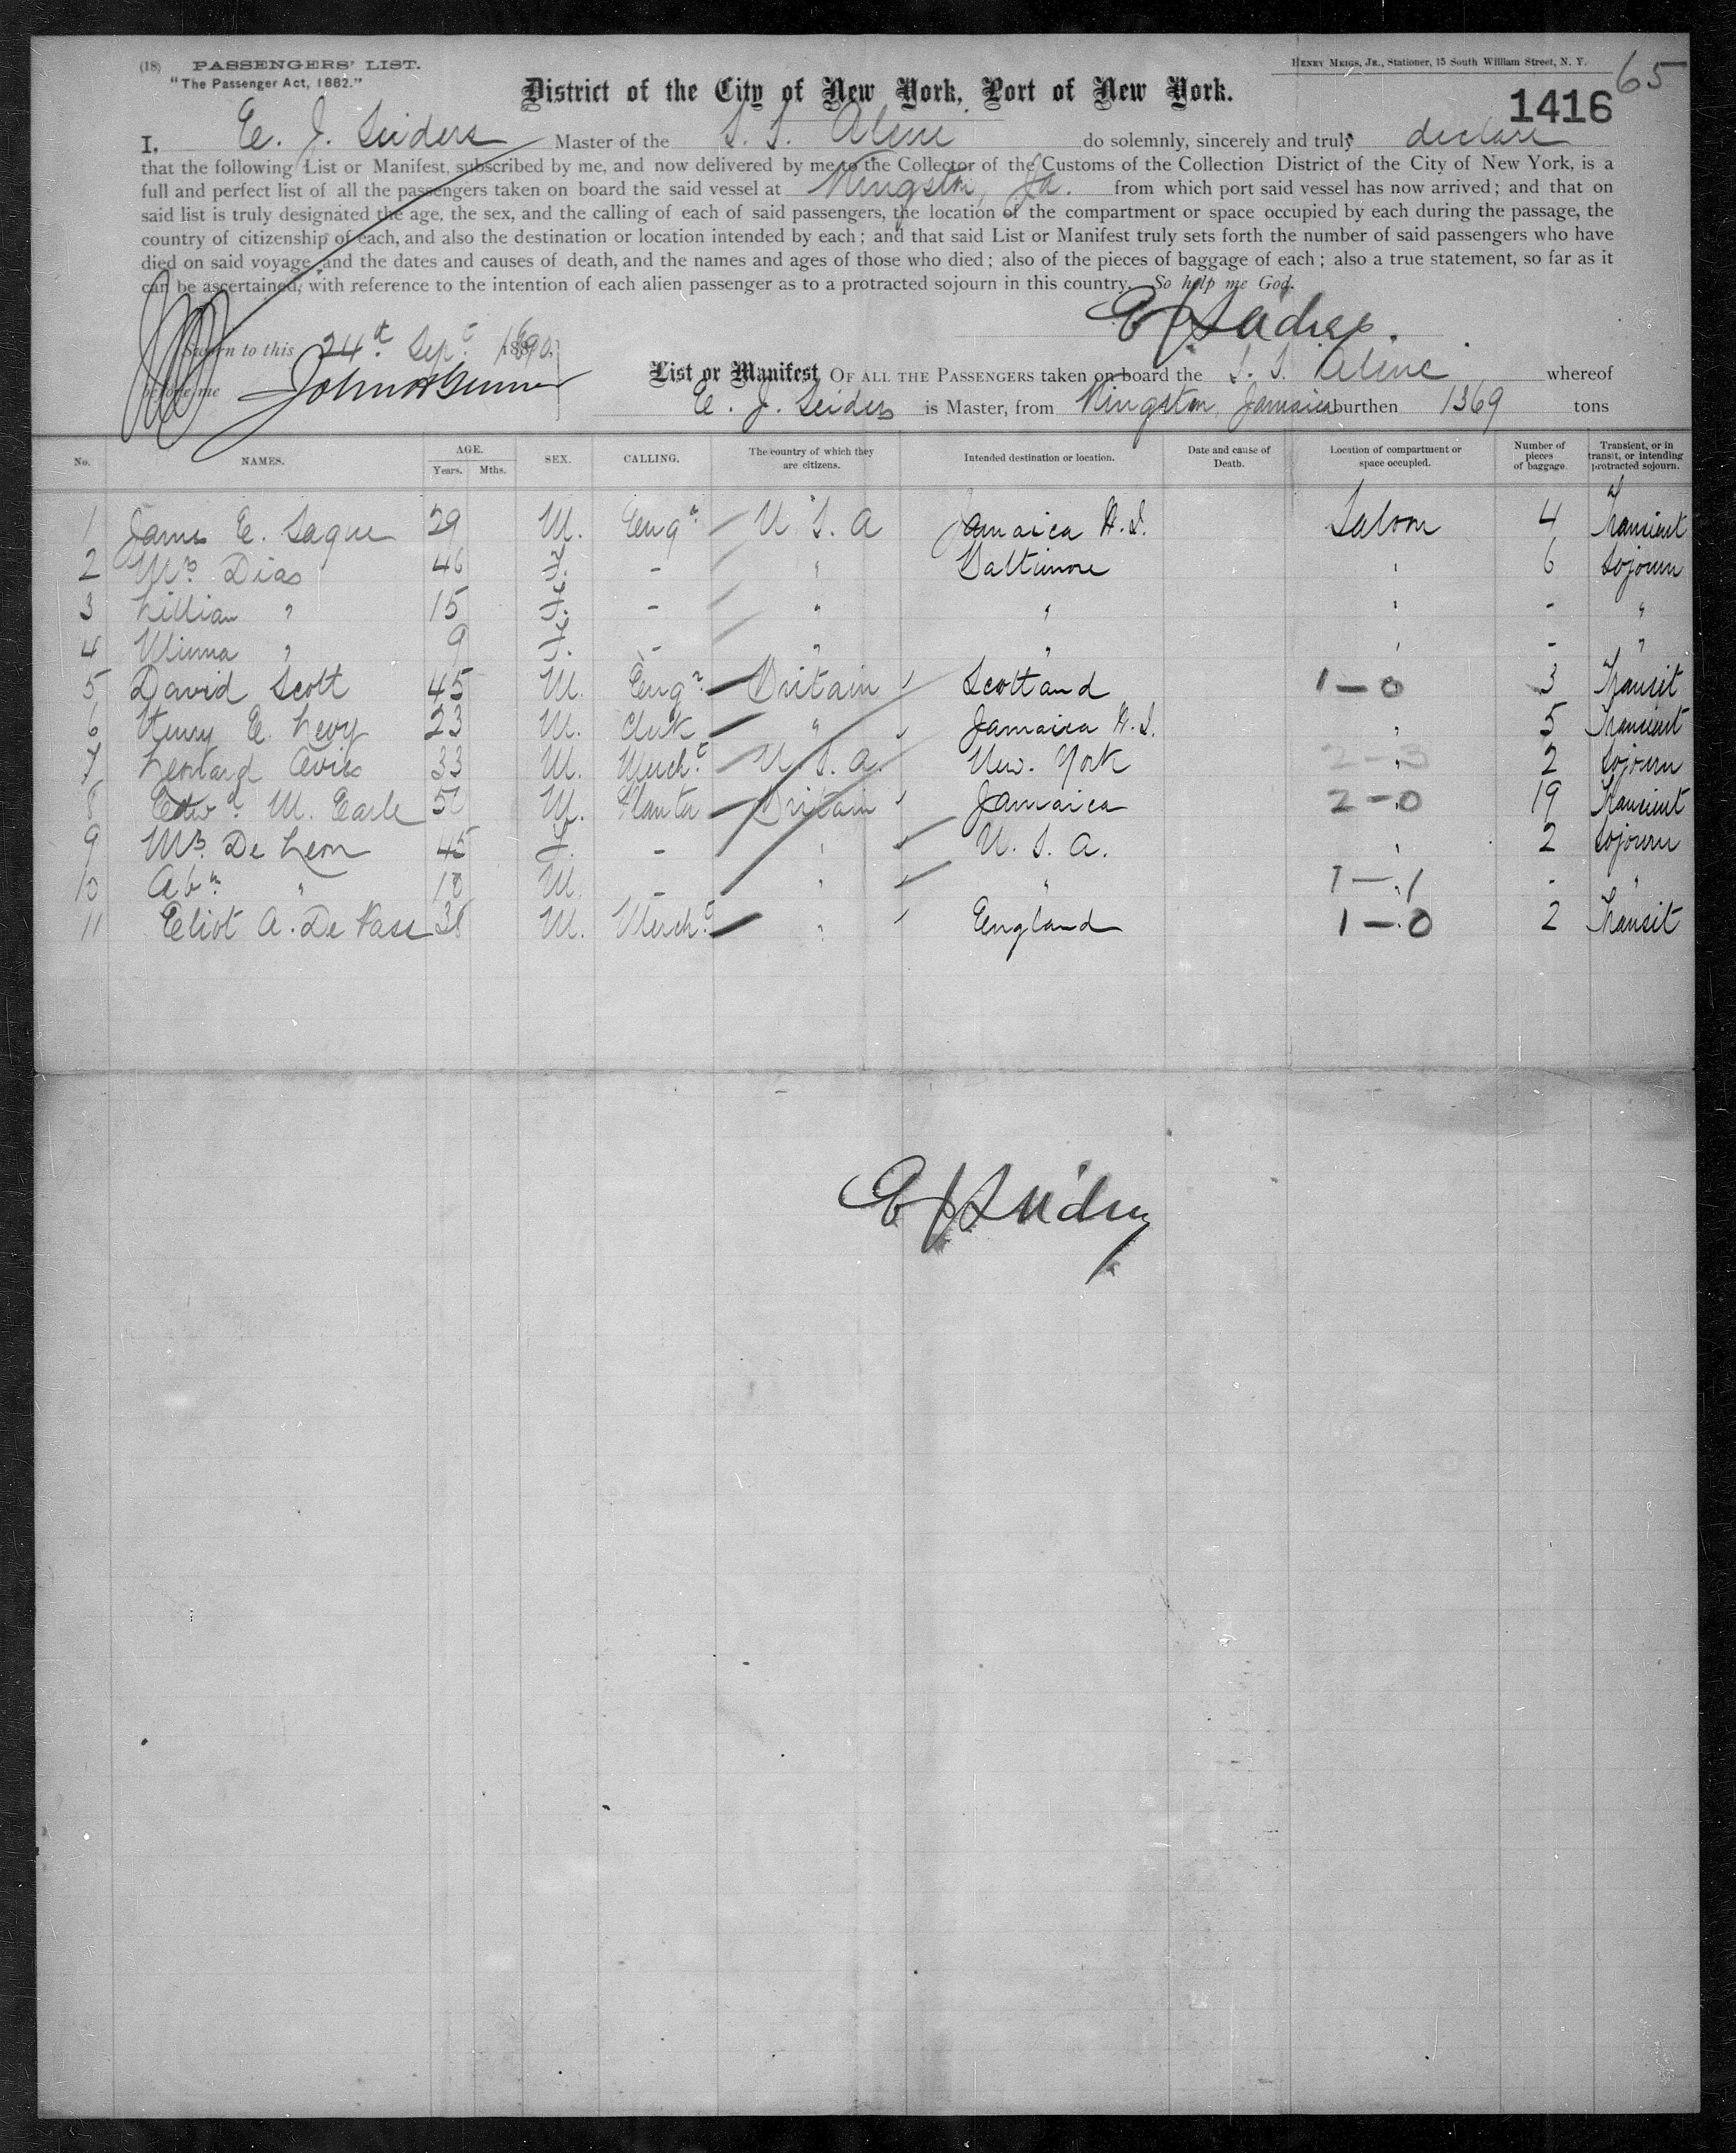 (18) PASSENGERS' LIST.
"The Passenger Act, 1882."
HENRY MEIGS, JR., Stationer, 15 South William Street, N. Y.
65
District of the City of New York, Port of New York.
1416
I, E. J. Seiders Master of the S. S. Alene do solemnly, sincerely and truly declare
that the following List or Manifest, subscribed by me, and now delivered by me to the Collector of the Customs of the Collection District of the City of New York, is a
full and perfect list of all the passengers taken on board the said vessel at Kingston, Ja. from which port said vessel has now arrived; and that on
said list is truly designated the age, the sex, and the calling of each of said passengers, the location of the compartment or space occupied by each during the passage, the
country of citizenship of each, and also the destination or location intended by each; and that said List or Manifest truly sets forth the number of said passengers who have
died on said voyage, and the dates and causes of death, and the names and ages of those who died; also of the pieces of baggage of each; also a true statement, so far as it
can be ascertained, with reference to the intention of each alien passenger as to a protracted sojourn in this country. So help me God.
E J Seiders
Sworn to this 24th Sept 1890
before me
List or Manifest OF ALL THE PASSENGERS taken on board the S. S. Alene whereof
E. J. Seiders is Master, from Kingston, Jamaica burthen 1369 tons
No. NAMES. AGE. Years. Mths. SEX. CALLING. The country of which they are citizens. Intended destination or location. Date and cause of Death. Location of compartment or space occupied. Number of pieces of baggage. Transient, or in transit, or intending protracted sojourn.
1 James E. Sague 29 M. Engr. U. S. A Jamaica W. I. Saloon 4 Transient
2 Mrs. Dias 46 F. - " Baltimore " 6 Sojourn
3 Lillian " 15 F. - " " " - "
4 Minna " 9 F. - " " " - "
5 David Scott 45 M. Engr. Britain Scotland 1-0 3 Transit
6 Henry E. Levy 23 M. Clerk " Jamaica W. I. " 5 Transient
7 Leonard 33 M. Mercht. U. S. A. New. York " 2 Sojourn
8 Edwd. M. Earle 50 M. Planter Britain Jamaica 2-0 19 Transient
9 Mrs. De Leon 45 F. - " U. S. A. " 2 Sojourn
10 Abm. " 10 M. - " " 1-1 - "
11 Eliot A. De Pass 38 M. Mercht. " England 1-0 2 Transit
E J Seiders